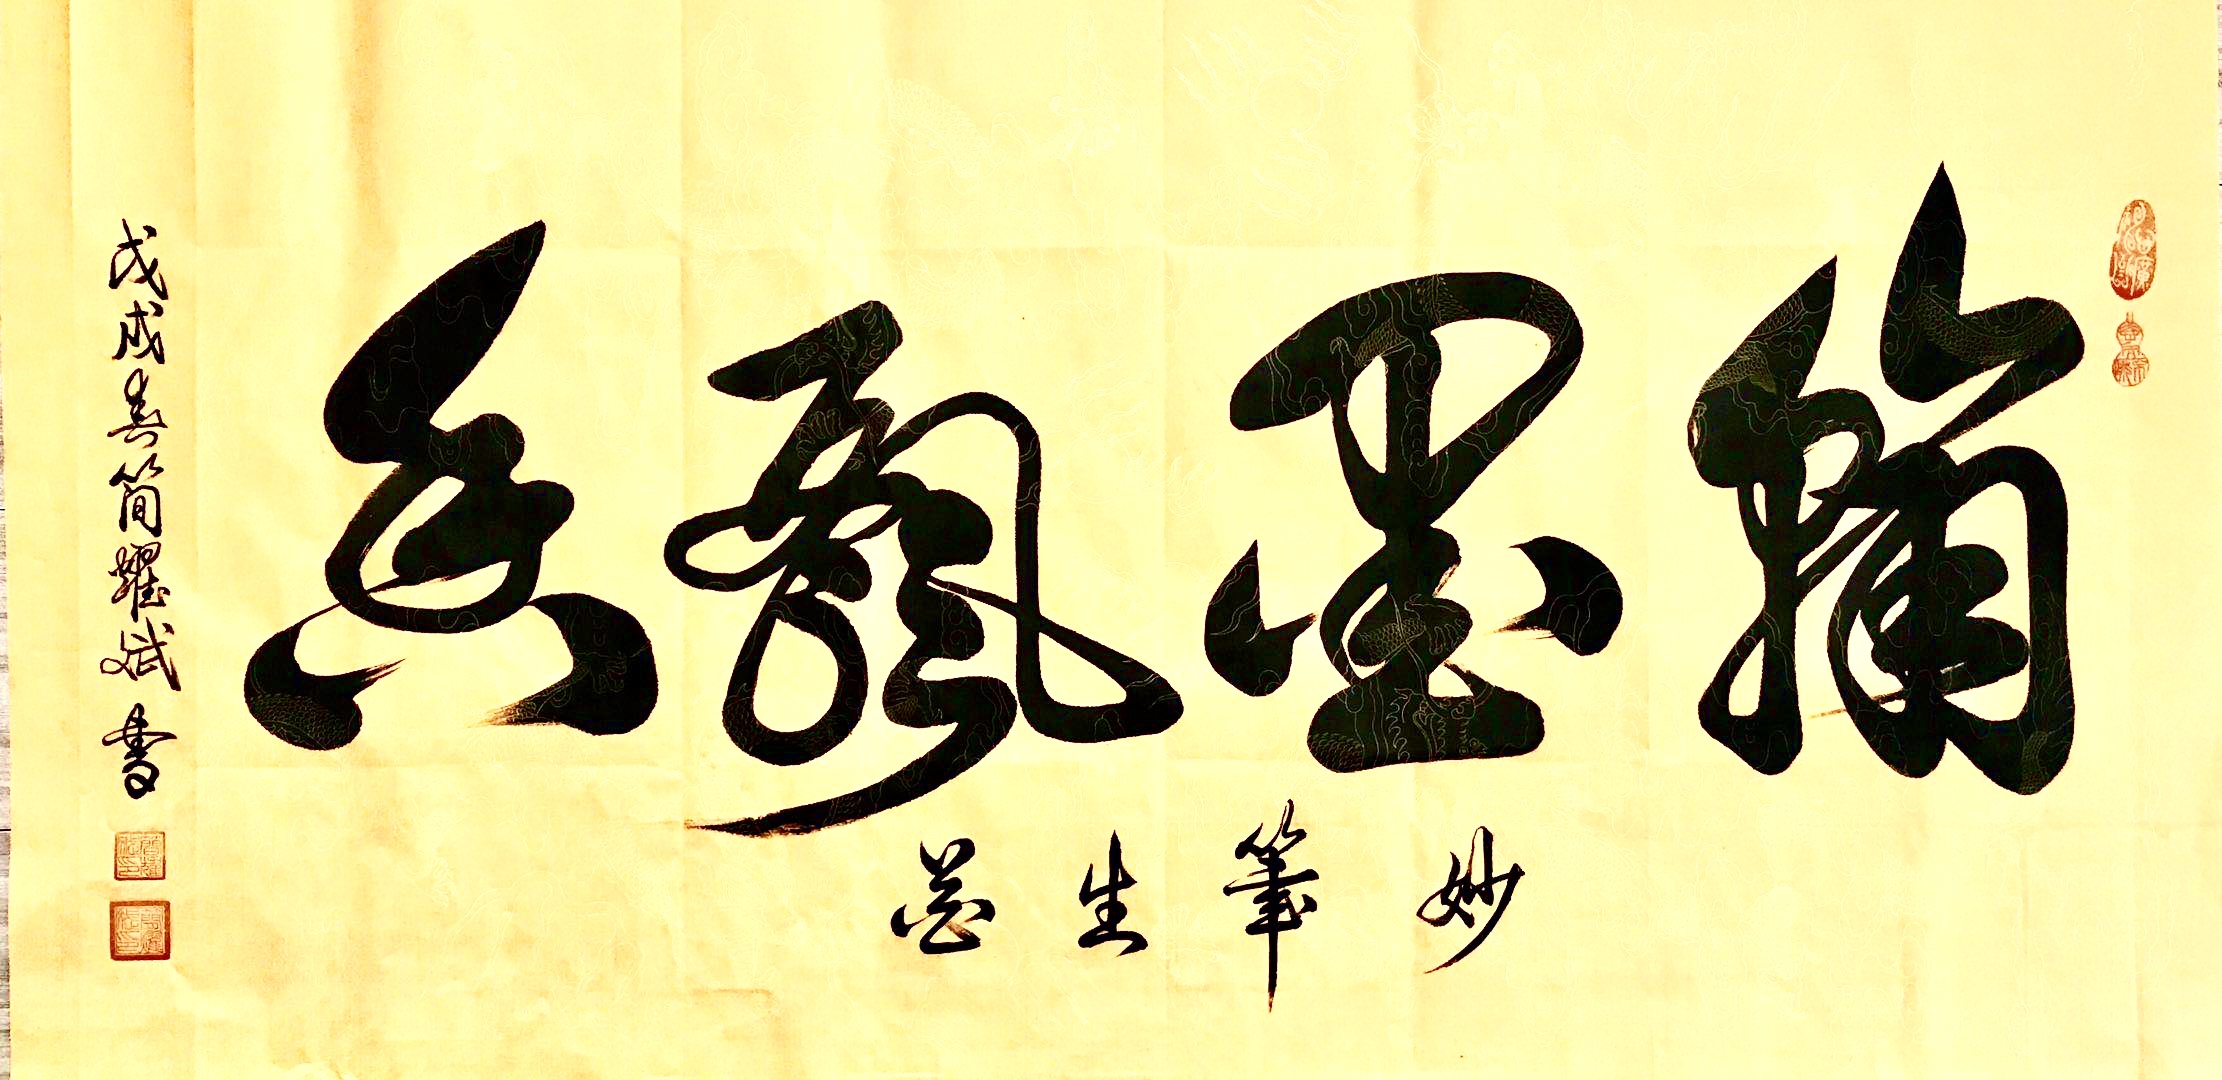 翰墨飄香
妙筆生花
戊戌春簡耀斌書